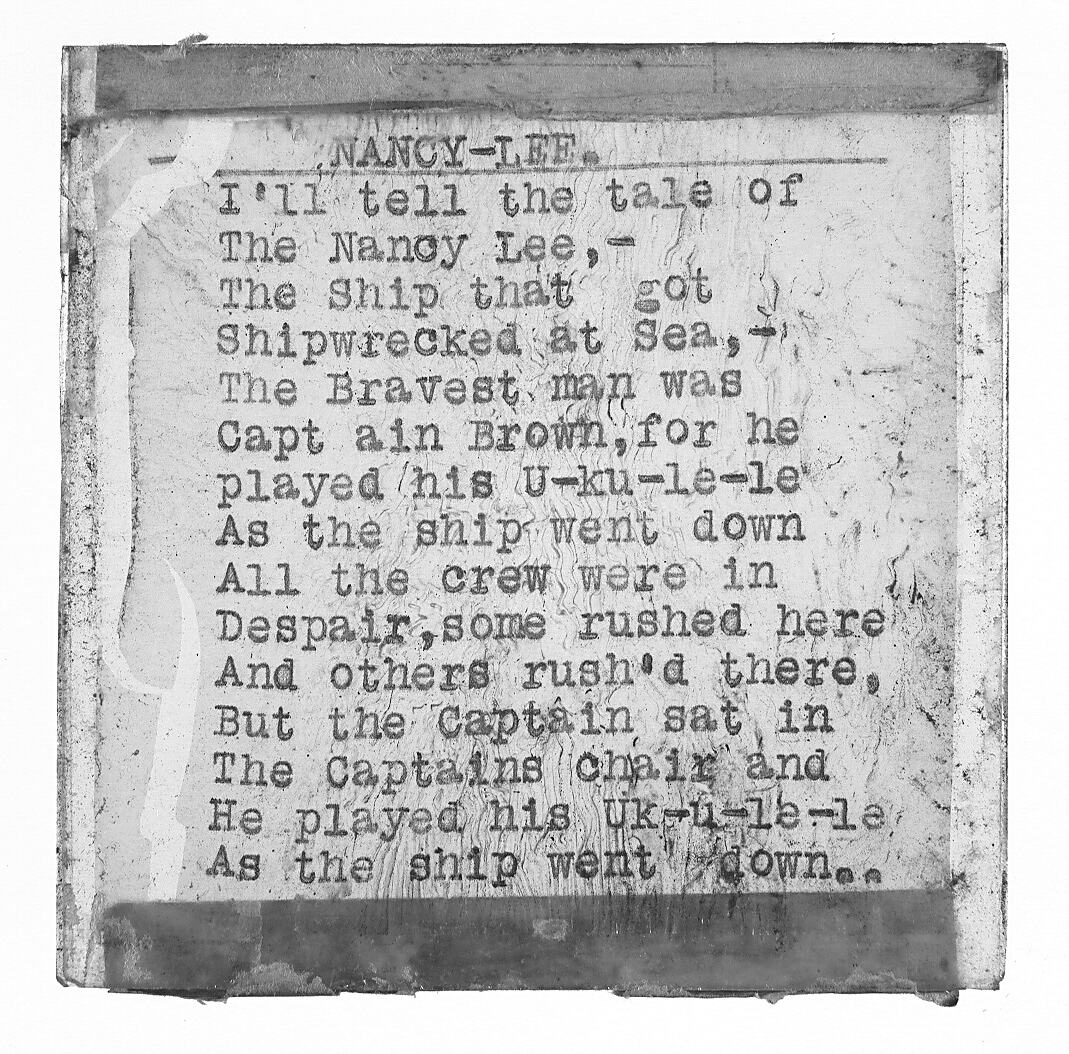 NANCY-LEE.
I'll tell the tale of
The Nancy Lee,-
The Ship that got
Shipwrecked at Sea,-
The Bravest man was
Capt ain Brown,for he
played his U-ku-le-le
As the ship went down
All the crew were in
Despair,some rushed here
And others rush'd there,
But the Captain sat in
The Captains chair and
He played his Uk-u-le-le
As the ship went down..